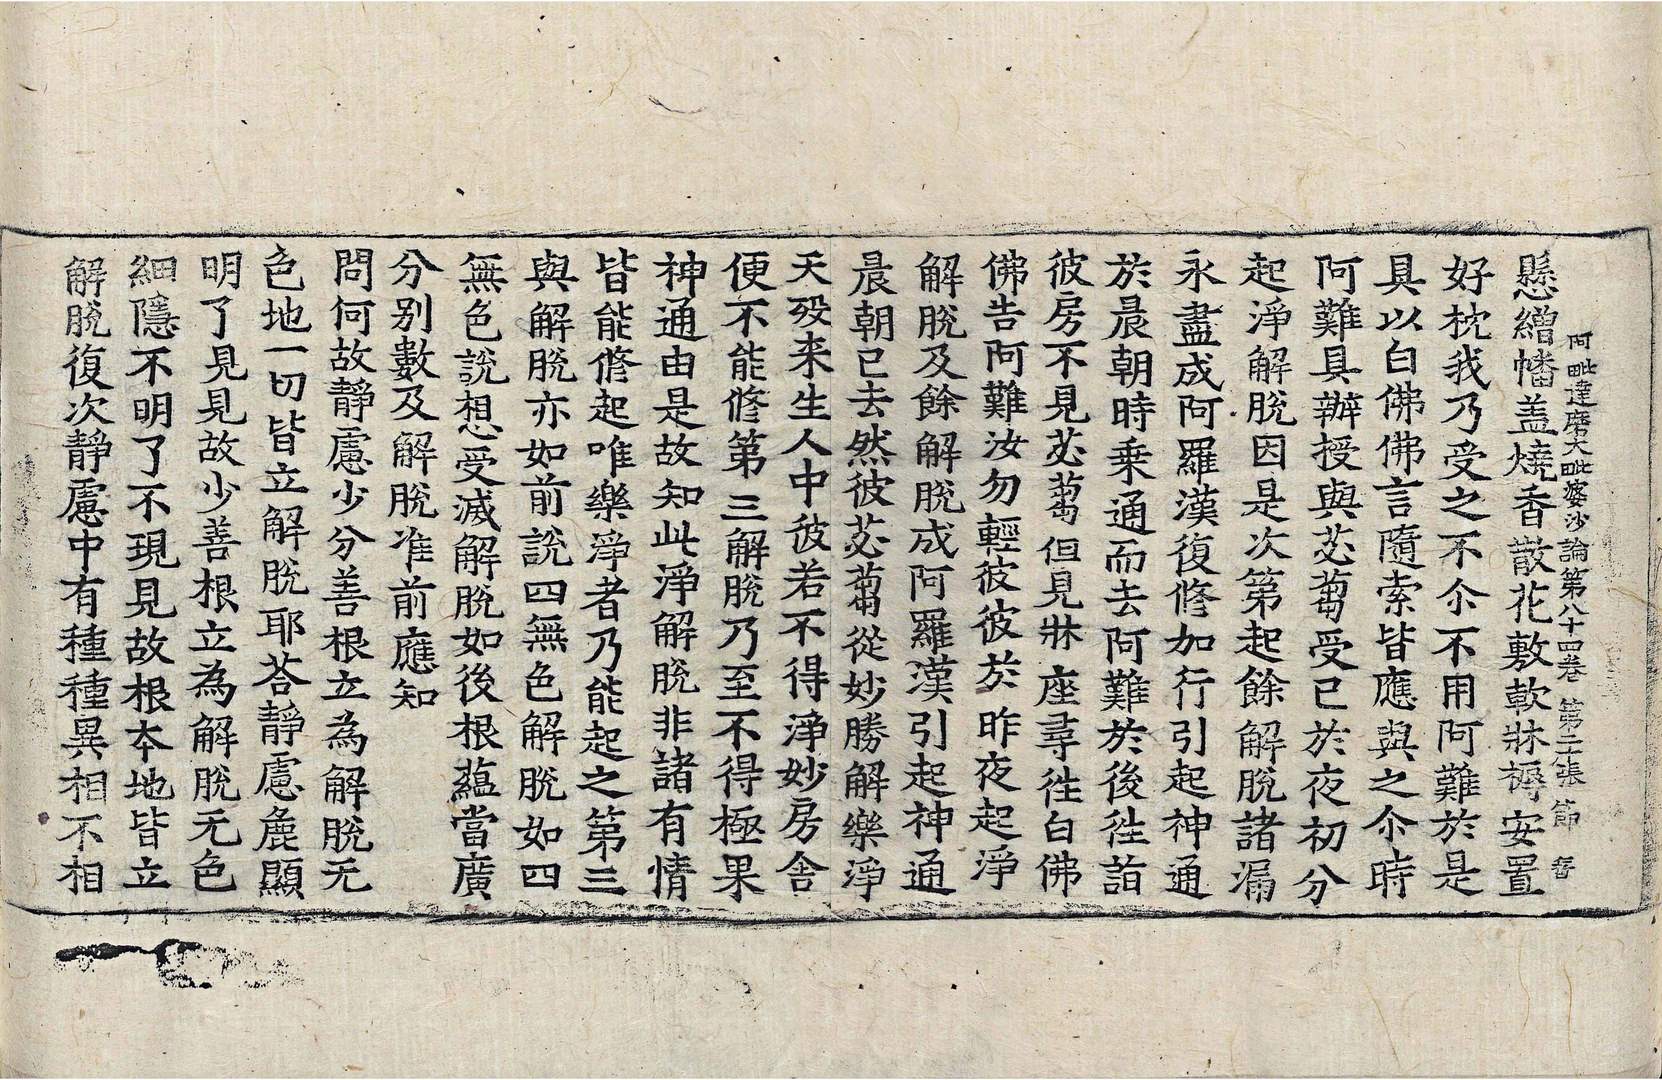 阿毗達磨大毗婆沙論第八十四卷 第二張 節
懸繒幡盖燒香散花敷軟牀褥安置
好枕我乃受之不尒不用阿難於是
具以白佛佛言隨索皆應與之尒時
阿難具辦授與苾蒭受已於夜初分
起淨解脫因是次第起餘解脫諸漏
永盡成阿羅漢復修加行引起神通
於晨朝時乗通而去阿難於後徃詣
彼房不見苾蒭但見牀座尋徃白佛
佛告阿難汝勿輕彼彼於昨夜起淨
解脫及餘解脫成阿羅漢引起神通
晨朝已去然彼苾蒭從妙勝解樂淨
天歿来生人中彼若不得淨妙房舍
便不能修第三解脫乃至不得極果
神通由是故知此淨解脫非諸有情
皆能修起唯樂淨者乃能起之第三
與解脫亦如前說四無色解脫如四
無色說想受滅解脫如後根蘊當廣
分别數及解脫准前應知
問何故靜慮少分善根立為解脫无
色地一切皆立解脫耶荅靜慮麁顯
明了見見故少善根立為解脫无色
細隱不明了不現見故根夲地皆立
解脫復次靜慮中有種種異相不相